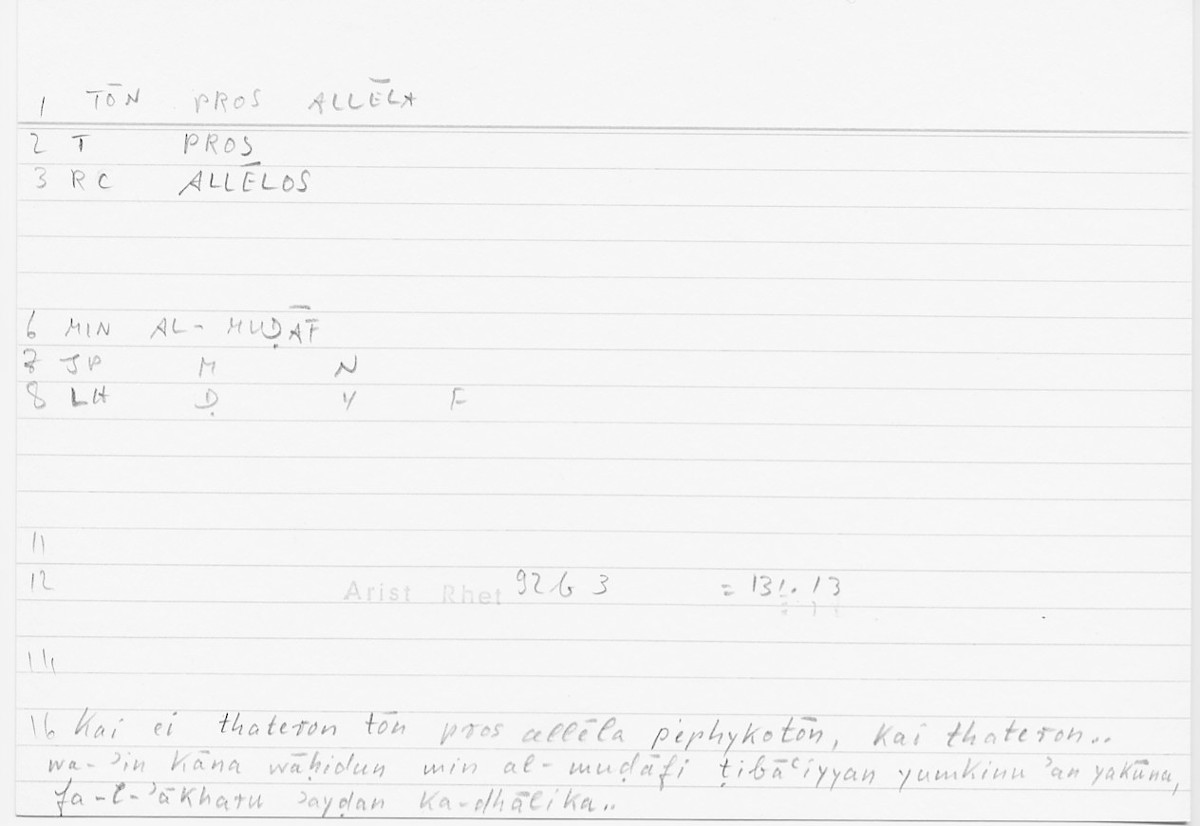 1 TŌN PROS ALLĒLA
2 T PROS
3 RC ALLĒLOS
6 MIN AL-MUḌĀF
7 JP M N
8 LH Ḍ Y F
11
12 Arist Rhet 92b 3 = 131.13
14
16 Kai ei thateron tōn pros allēla pephykotōn, kai thateron..
wa-ʾin kāna wāḥidun min al-muḍāfi ṭibāʿiyyan yumkinu ʾan yakūna,
fa-l-ʾākharu ʾayḍan ka-dhālika..